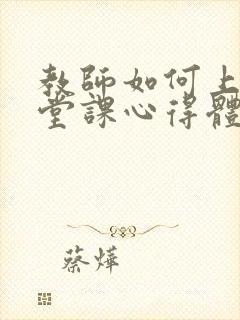 教師如何上
堂課心得體
蔡燁